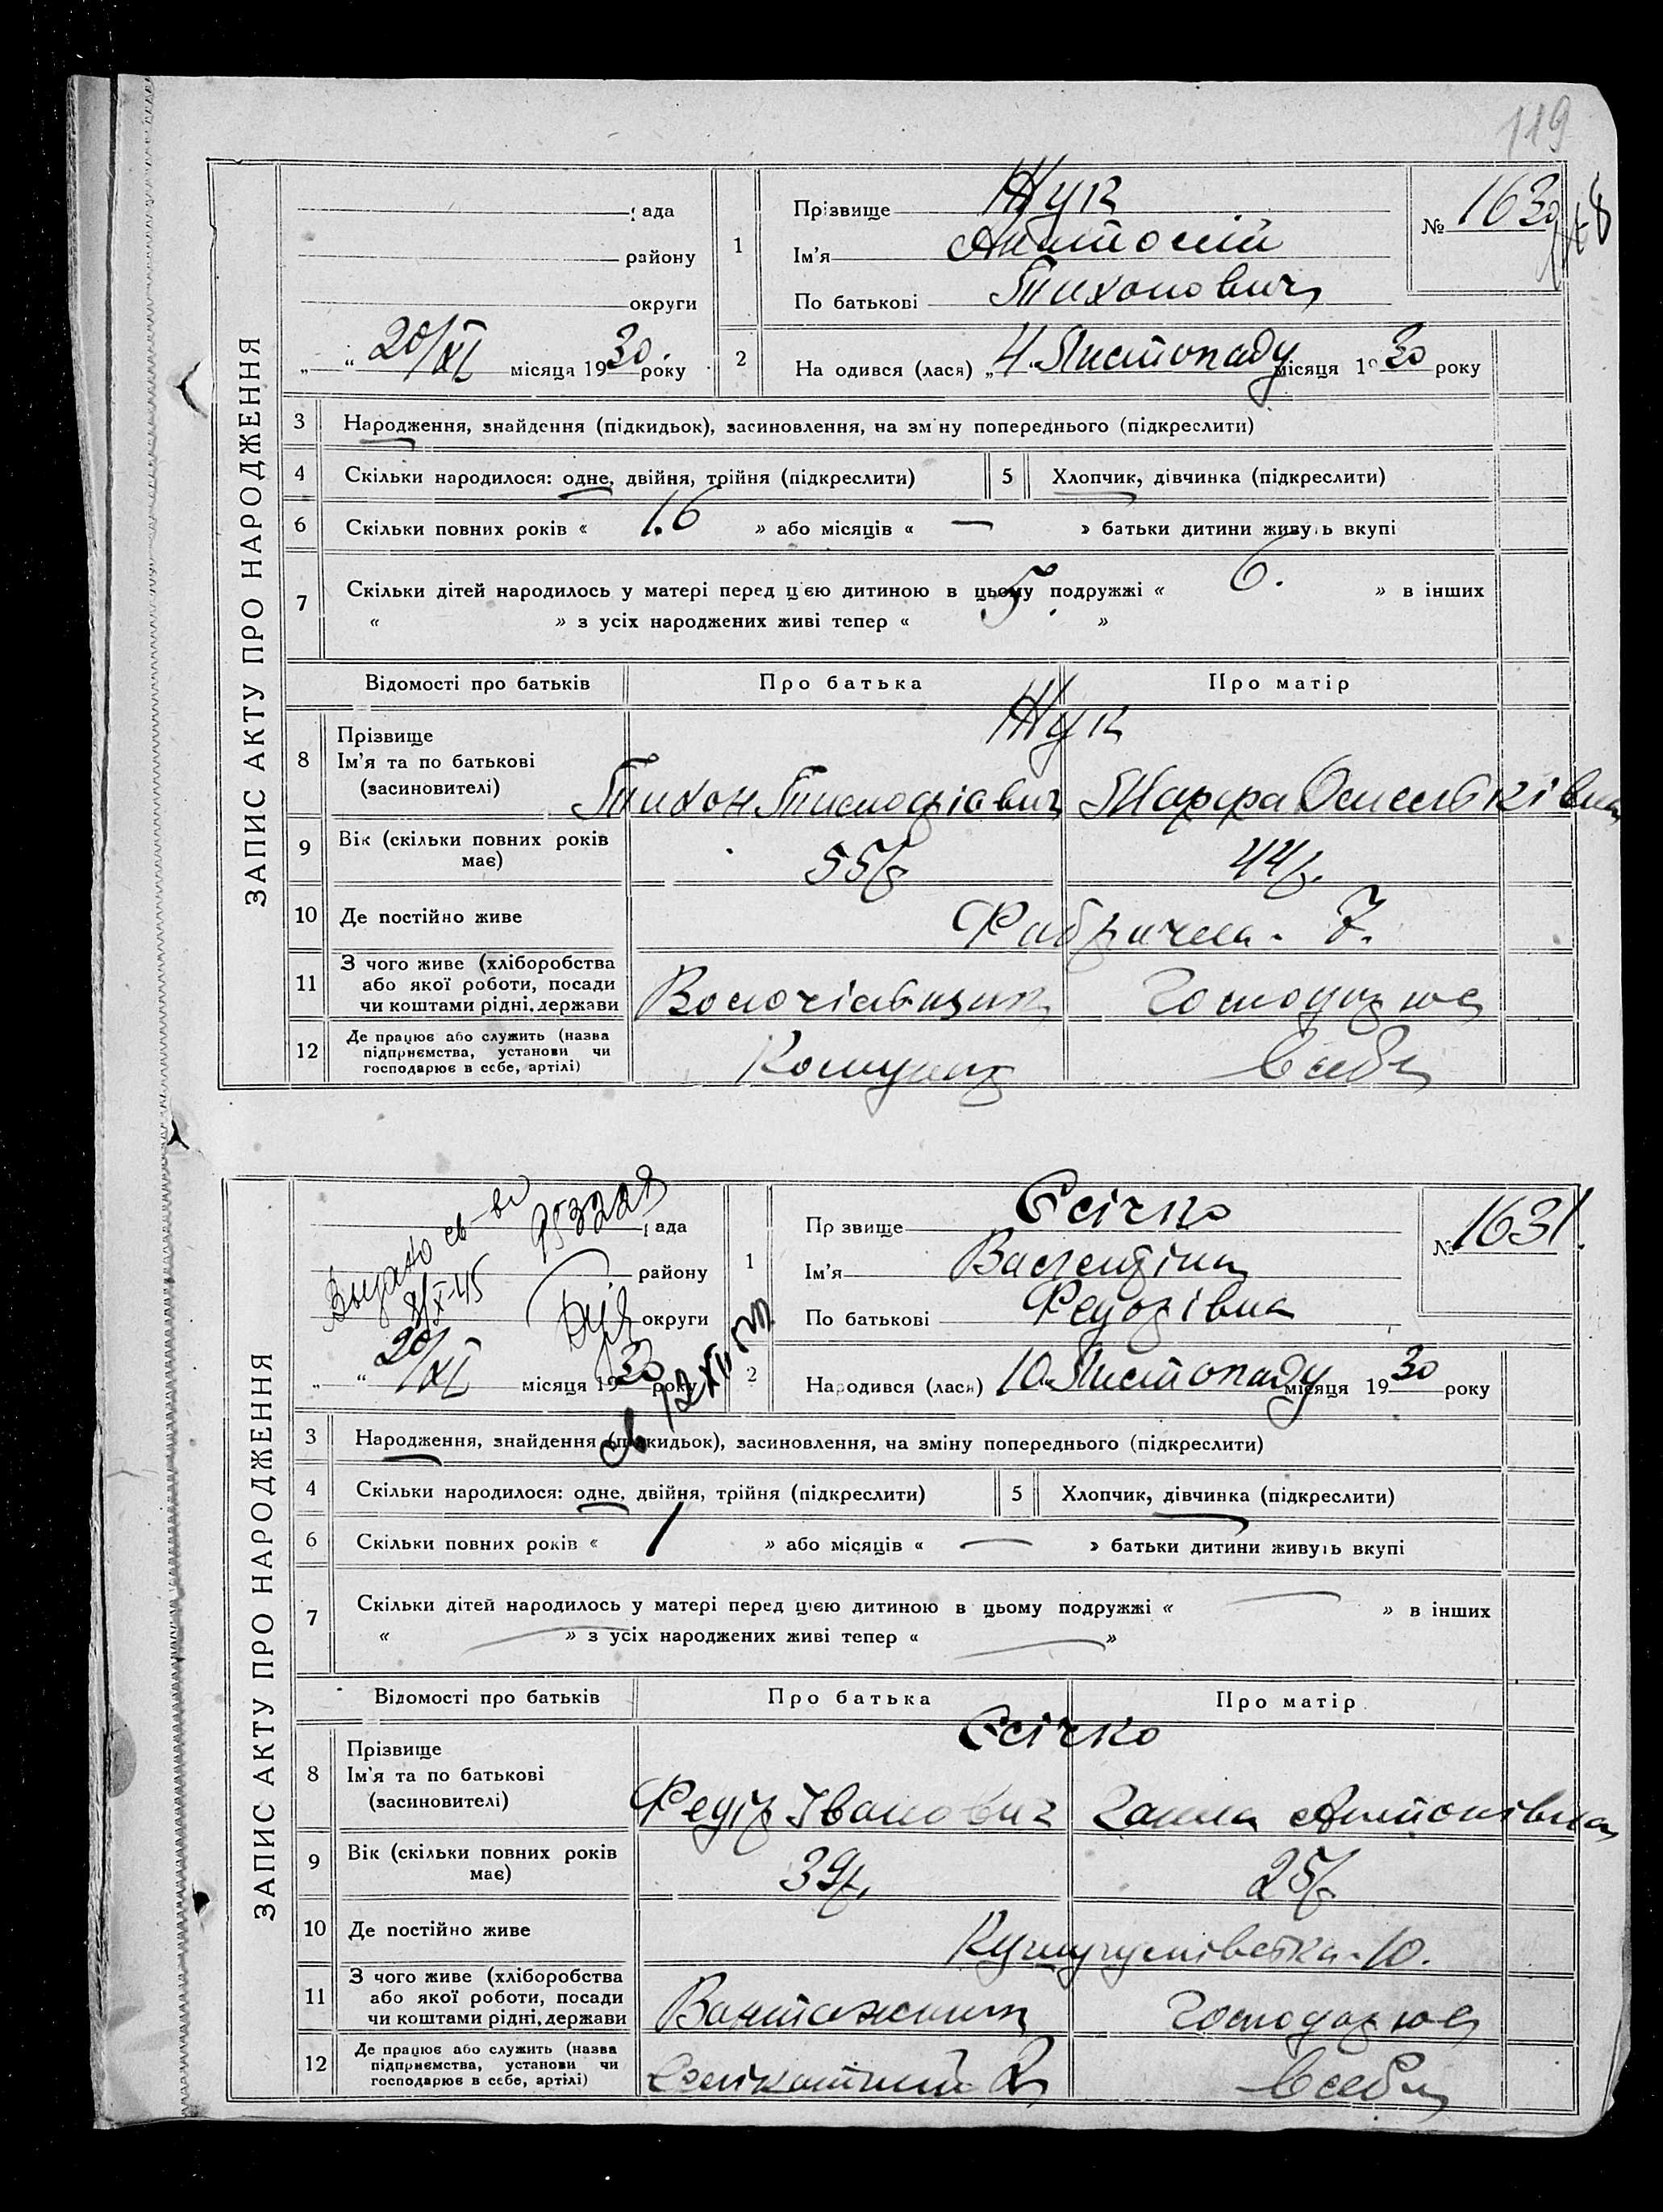 119
ЗАПИС АКТУ ПРО НАРОДЖЕННЯ
рада
району
округи
„ “ 20/XI місяця 1930. року
1
Прізвище Жук
Ім'я Анатолій
По батькові Тихонович
№ 1630
2
Народився (лася) „4“ Листопаду місяця 1930 року
3 Народження, знайдення (підкидьок), засиновлення, на зміну попереднього (підкреслити)
4 Скільки народилося: одне, двійня, трійня (підкреслити) 5 Хлопчик, дівчинка (підкреслити)
6 Скільки повних років « 16 » або місяців « — » батьки дитини живуть вкупі
7 Скільки дітей народилось у матері перед цією дитиною в цьому подружжі « 6. » в інших
« » з усіх народжених живі тепер « 5. »
Відомості про батьків Про батька Про матір
8 Прізвище
Ім'я та по батькові
(засиновителі)
Жук
Тихон Тимофієвич Марфа
9 Вік (скільки повних років має) 55 44
10 Де постійно живе Фабрична. 7.
11 З чого живе (хліборобства або якої роботи, посади чи коштами рідні, держави Господарює
12 Де працює або служить (назва підприємства, установи чи господарює в себе, артілі) Комунгосп в себе
ЗАПИС АКТУ ПРО НАРОДЖЕННЯ
Выдано св-во
8/X-45
рада
району
округи
„ “ 20/XI місяця 1930 року
1
Прізвище Єсічко
Ім'я Валентіна
По батькові Федорівна
№ 1631.
2
Народився (лася) 10 Листопаду місяця 1930 року
3 Народження, знайдення (підкидьок), засиновлення, на зміну попереднього (підкреслити)
4 Скільки народилося: одне, двійня, трійня (підкреслити) 5 Хлопчик, дівчинка (підкреслити)
6 Скільки повних років « 1 » або місяців « — » батьки дитини живуть вкупі
7 Скільки дітей народилось у матері перед цією дитиною в цьому подружжі « — » в інших
« — » з усіх народжених живі тепер « — »
Відомості про батьків Про батька Про матір
8 Прізвище
Ім'я та по батькові
(засиновителі)
Єсічко
Федір Іванович Ганна Антонівна
9 Вік (скільки повних років має) 39 25
10 Де постійно живе 10.
11 З чого живе (хліборобства або якої роботи, посади чи коштами рідні, держави Вантажник Господарює
12 Де працює або служить (назва підприємства, установи чи господарює в себе, артілі) в себе